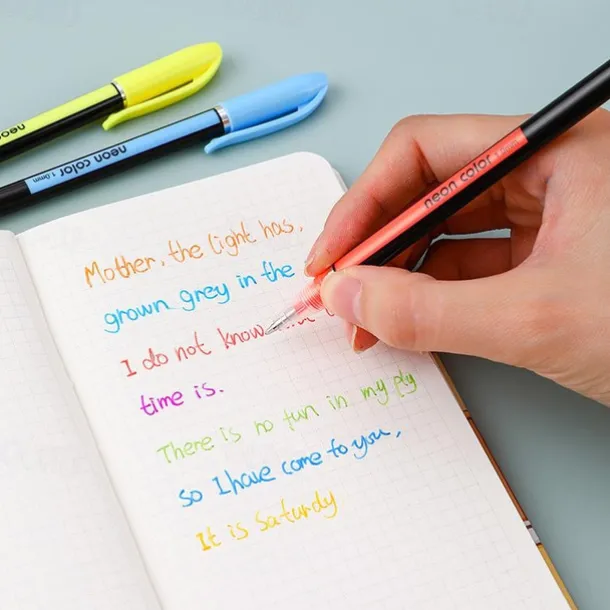 neon color
neon color 1.0mm
neon color
Mother, the light has,
grown grey in the
I do not know
time is.
There is no fun in my ply
so I have come to you,
It is Saturdy